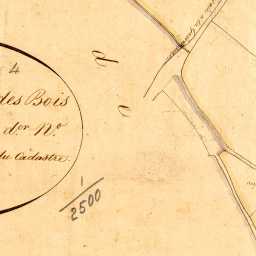 4
des Bois
d.er N.o
du Cadastre.
d
o
1
2500